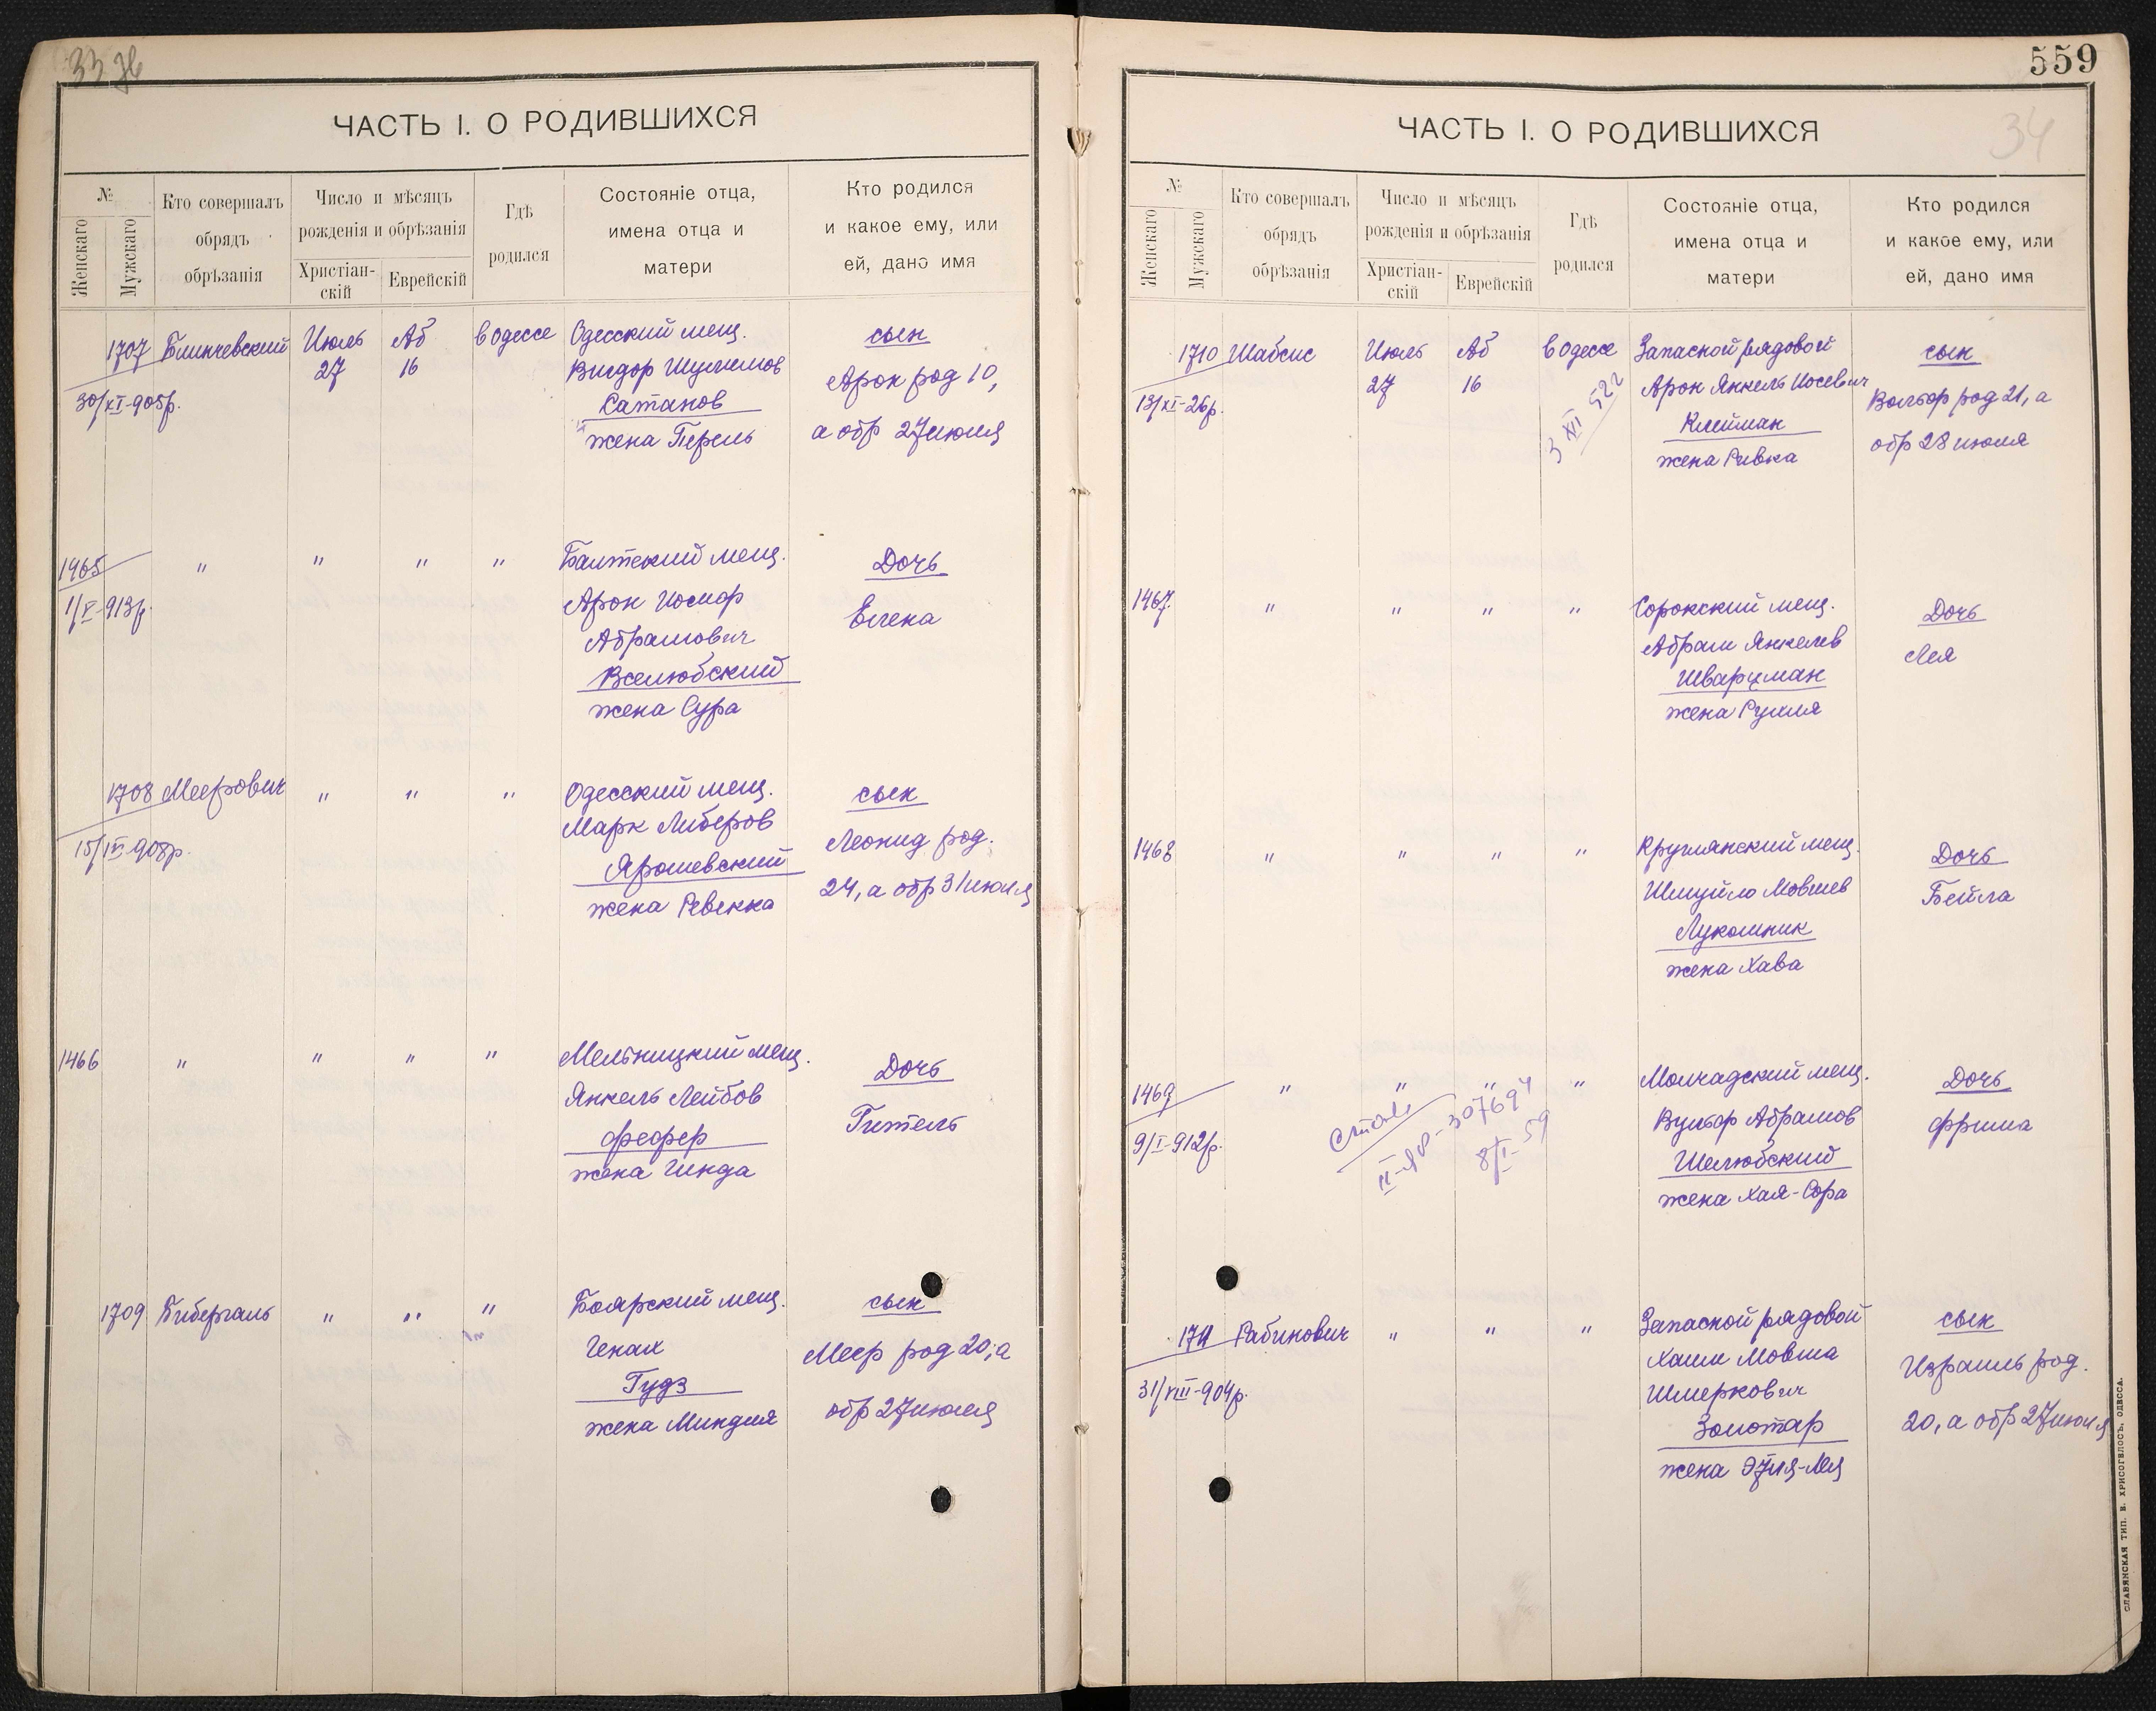 33 об
ЧАСТЬ I. О РОДИВШИХСЯ
№
Женскаго
Мужскаго
Кто совершалъ
обрядъ
обрѣзанія
Число и мѣсяцъ
рожденія и обрѣзанія
Христіан-
скій
Еврейскій
Гдѣ
родился
Состояніе отца,
имена отца и
матери
Кто родился
и какое ему, или
ей, дано имя
1707 Блинчевский Июль Аб в Одессе Одесский мещ. сын
27 16 Вигдор Шулимов
30/XI-905р. Сатанов Арон род 10,
жена Перель а обр 27 июля
1465 " " " " Балтский мещ. Дочь
1/V-913р. Арон Иосиф Елена
Абрамович
Вселюбский
жена Сура
1708 Меерович " " " Одесский мещ. сын
Марк Либеров Леонид род.
15/IX-908р. Ярошевский 24, а обр 31 июля
жена Ревекка
1466 " " " " Мельницкий мещ. Дочь
Янкель Лейбов Гитель
Фефер
жена Гинда
1709 Бибергаль " " " Боярский мещ. сын
Генах Меер род 20, а
Гудз обр 27 июля
жена Миндля
559
34
ЧАСТЬ I. О РОДИВШИХСЯ
№
Женскаго
Мужскаго
Кто совершалъ
обрядъ
обрѣзанія
Число и мѣсяцъ
рожденія и обрѣзанія
Христіан-
скій
Еврейскій
Гдѣ
родился
Состояніе отца,
имена отца и
матери
Кто родился
и какое ему, или
ей, дано имя
1710 Шабсис Июль Аб в Одессе Запасной рядовой сын
27 16 Арон Янкель Иосевич Вольф род 21, а
13/XI-26р. 3 XII 522 Клейман обр 28 июля
жена Ривка
1467. " " " " Сорокский мещ. Дочь
Абрам Янкелев Лея
Шварцман
жена Рухля
1468 " " " " Круглянский мещ. Дочь
Шмуйло Мовшев Бейла
Лукомник
жена Хава
1469 " " " " Молчадский мещ. Дочь
9/I-912р. Вульф Абрамов Фрима
II-ЯО-307694 Шелюбский
8/I-59 жена Хая-Сора
1711 Рабинович " " " Запасной рядовой сын
Хаим Мовша Израиль род.
31/VIII-904р. Шмеркович 20, а обр 27 июля
Золотар
жена Этля-Лея
СЛАВЯНСКАЯ ТИП. Е. ХРИСОГЕЛОСЪ, ОДЕССА.